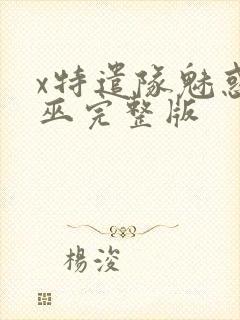 x特遣隊魅惑
巫完整版
楊浚